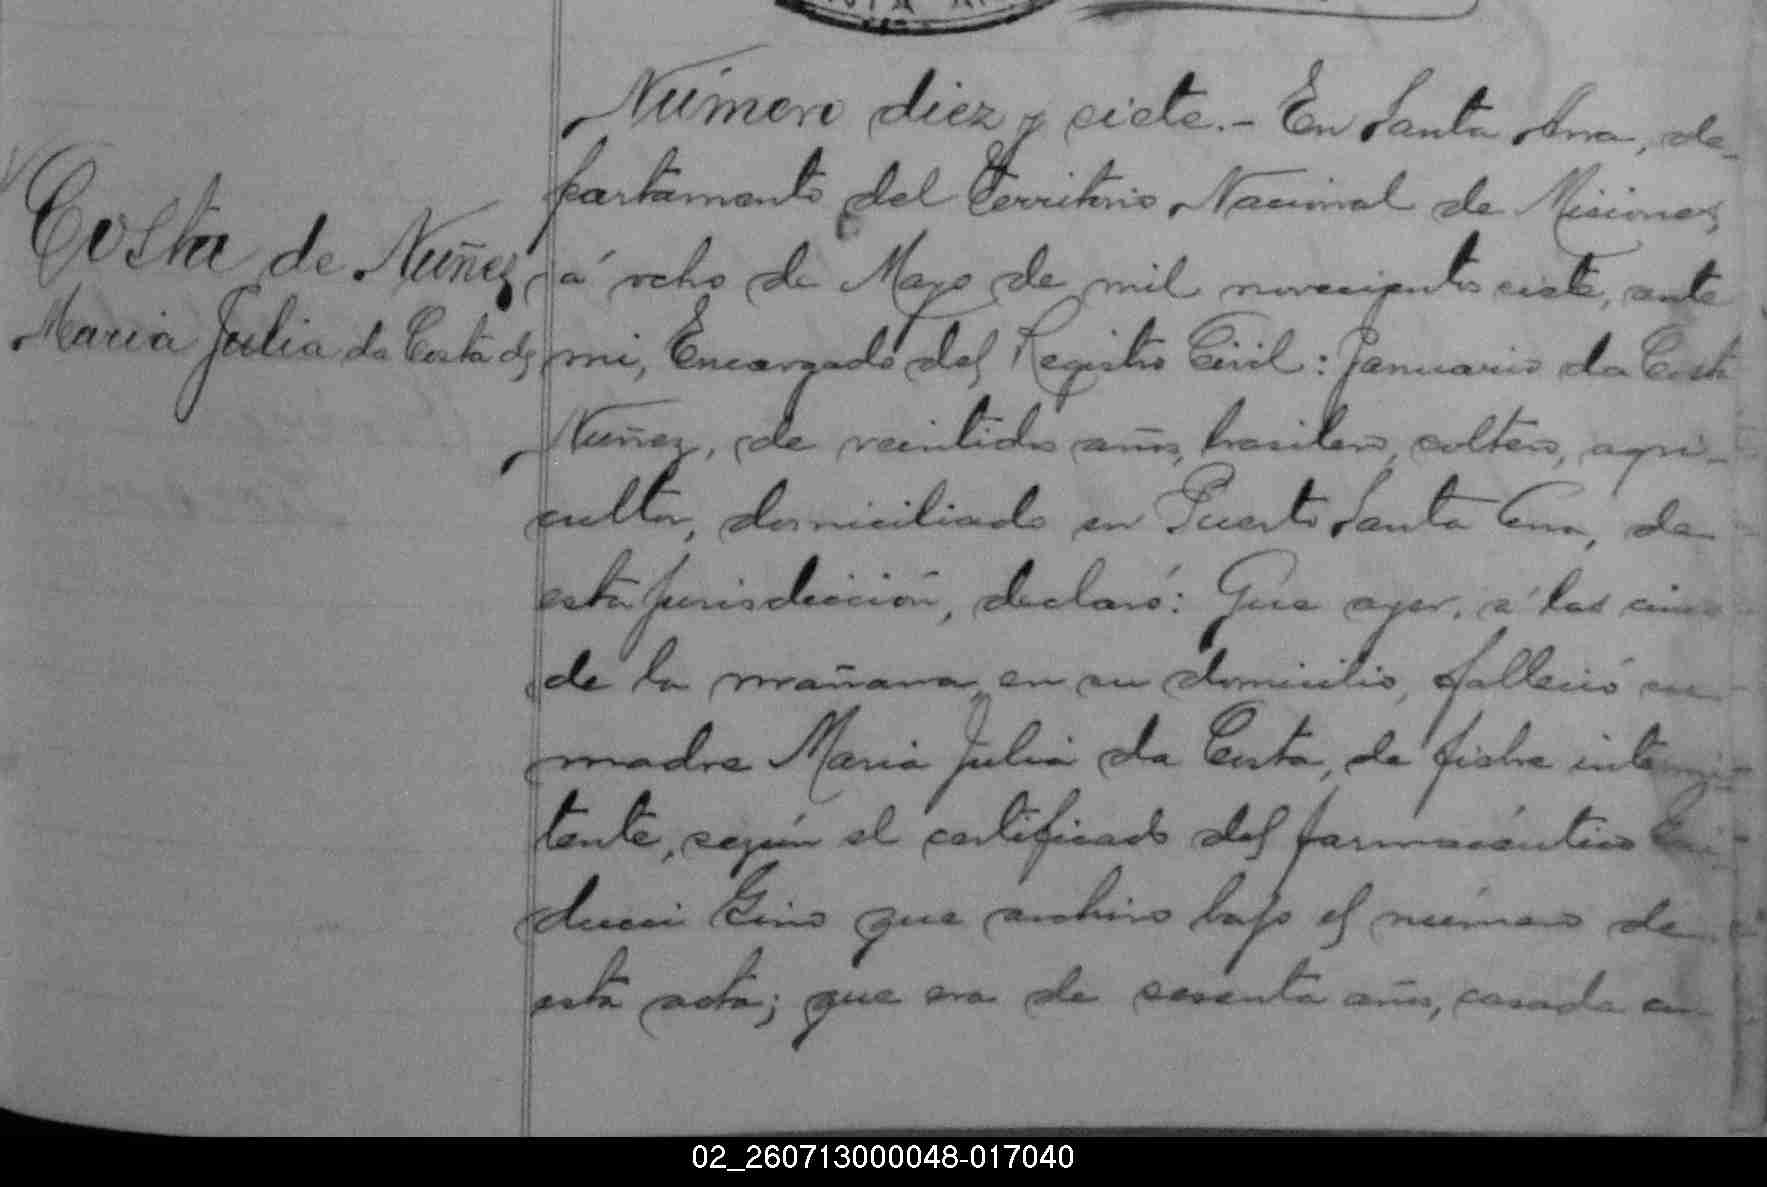 Costa de Nuñez
Maria Julia da Costa de
Número diez y siete.- En Santa Ana, de-
partamento del Territorio Nacional de Misiones,
á ocho de Mayo de mil novecientos siete, ante
mi, Encargado del Registro Civil: Januario da Costa
Nuñez, de veintidos años, brasilero, soltero, agri-
cultor, domiciliado en Puerto Santa Ana, de
esta jurisdicción, declaró: Que ayer, á las cinco
de la mañana, en su domicilio, falleció su
madre Maria Julia da Costa, de fiebre intermi-
tente, según el certificado del farmacéutico
ducci Gino que archivo bajo el número de
esta acta; que era de sesenta años, casada en
02_260713000048-017040